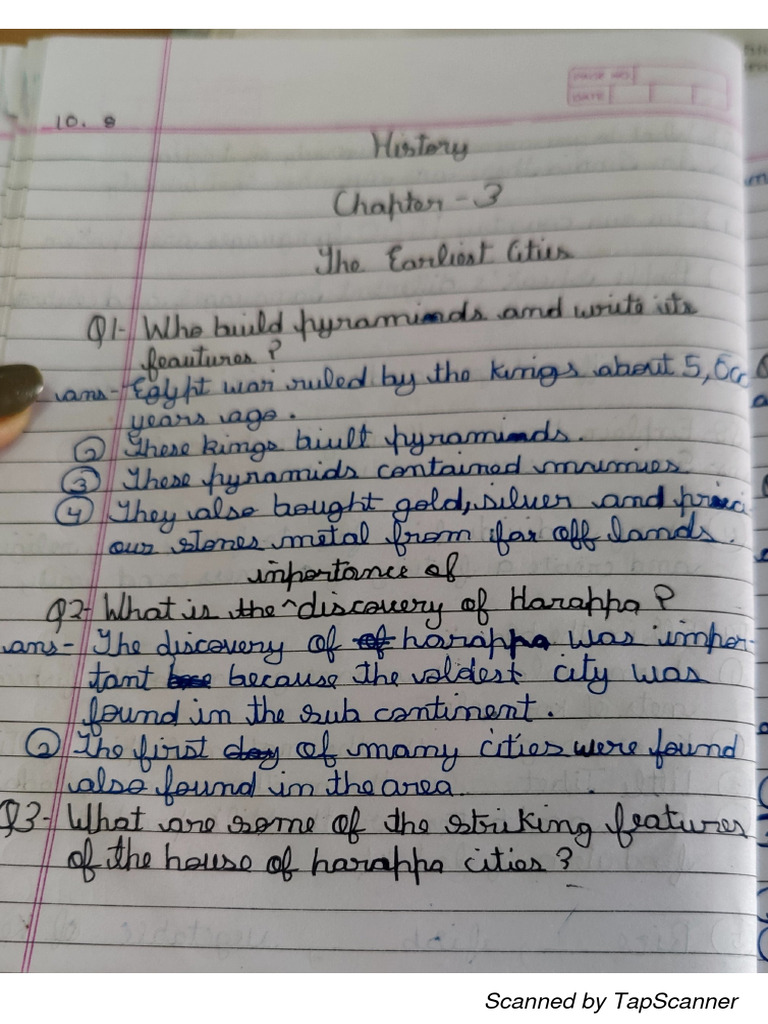 PAGE NO.
DATE
10. 8
History
Chapter - 3
The Earliest Cities
Q1- Who build pyraminds and write its
feautures ?
ans- Egypt was ruled by the kings about 5,
years ago.
② These kings built pyraminds.
③ These pyramids contained mumies
④ They also bought gold, silver and preci
ous stones metal from far off lands.
importance of
Q2- What is the ^ discovery of Harappa ?
ans- The discovery of of harappa was impor-
tant because the oldest city was
found in the sub continent.
② The first day of many cities were found
also found in the area.
Q3- What are some of the striking features
of the house of harappa cities ?
Scanned by TapScanner